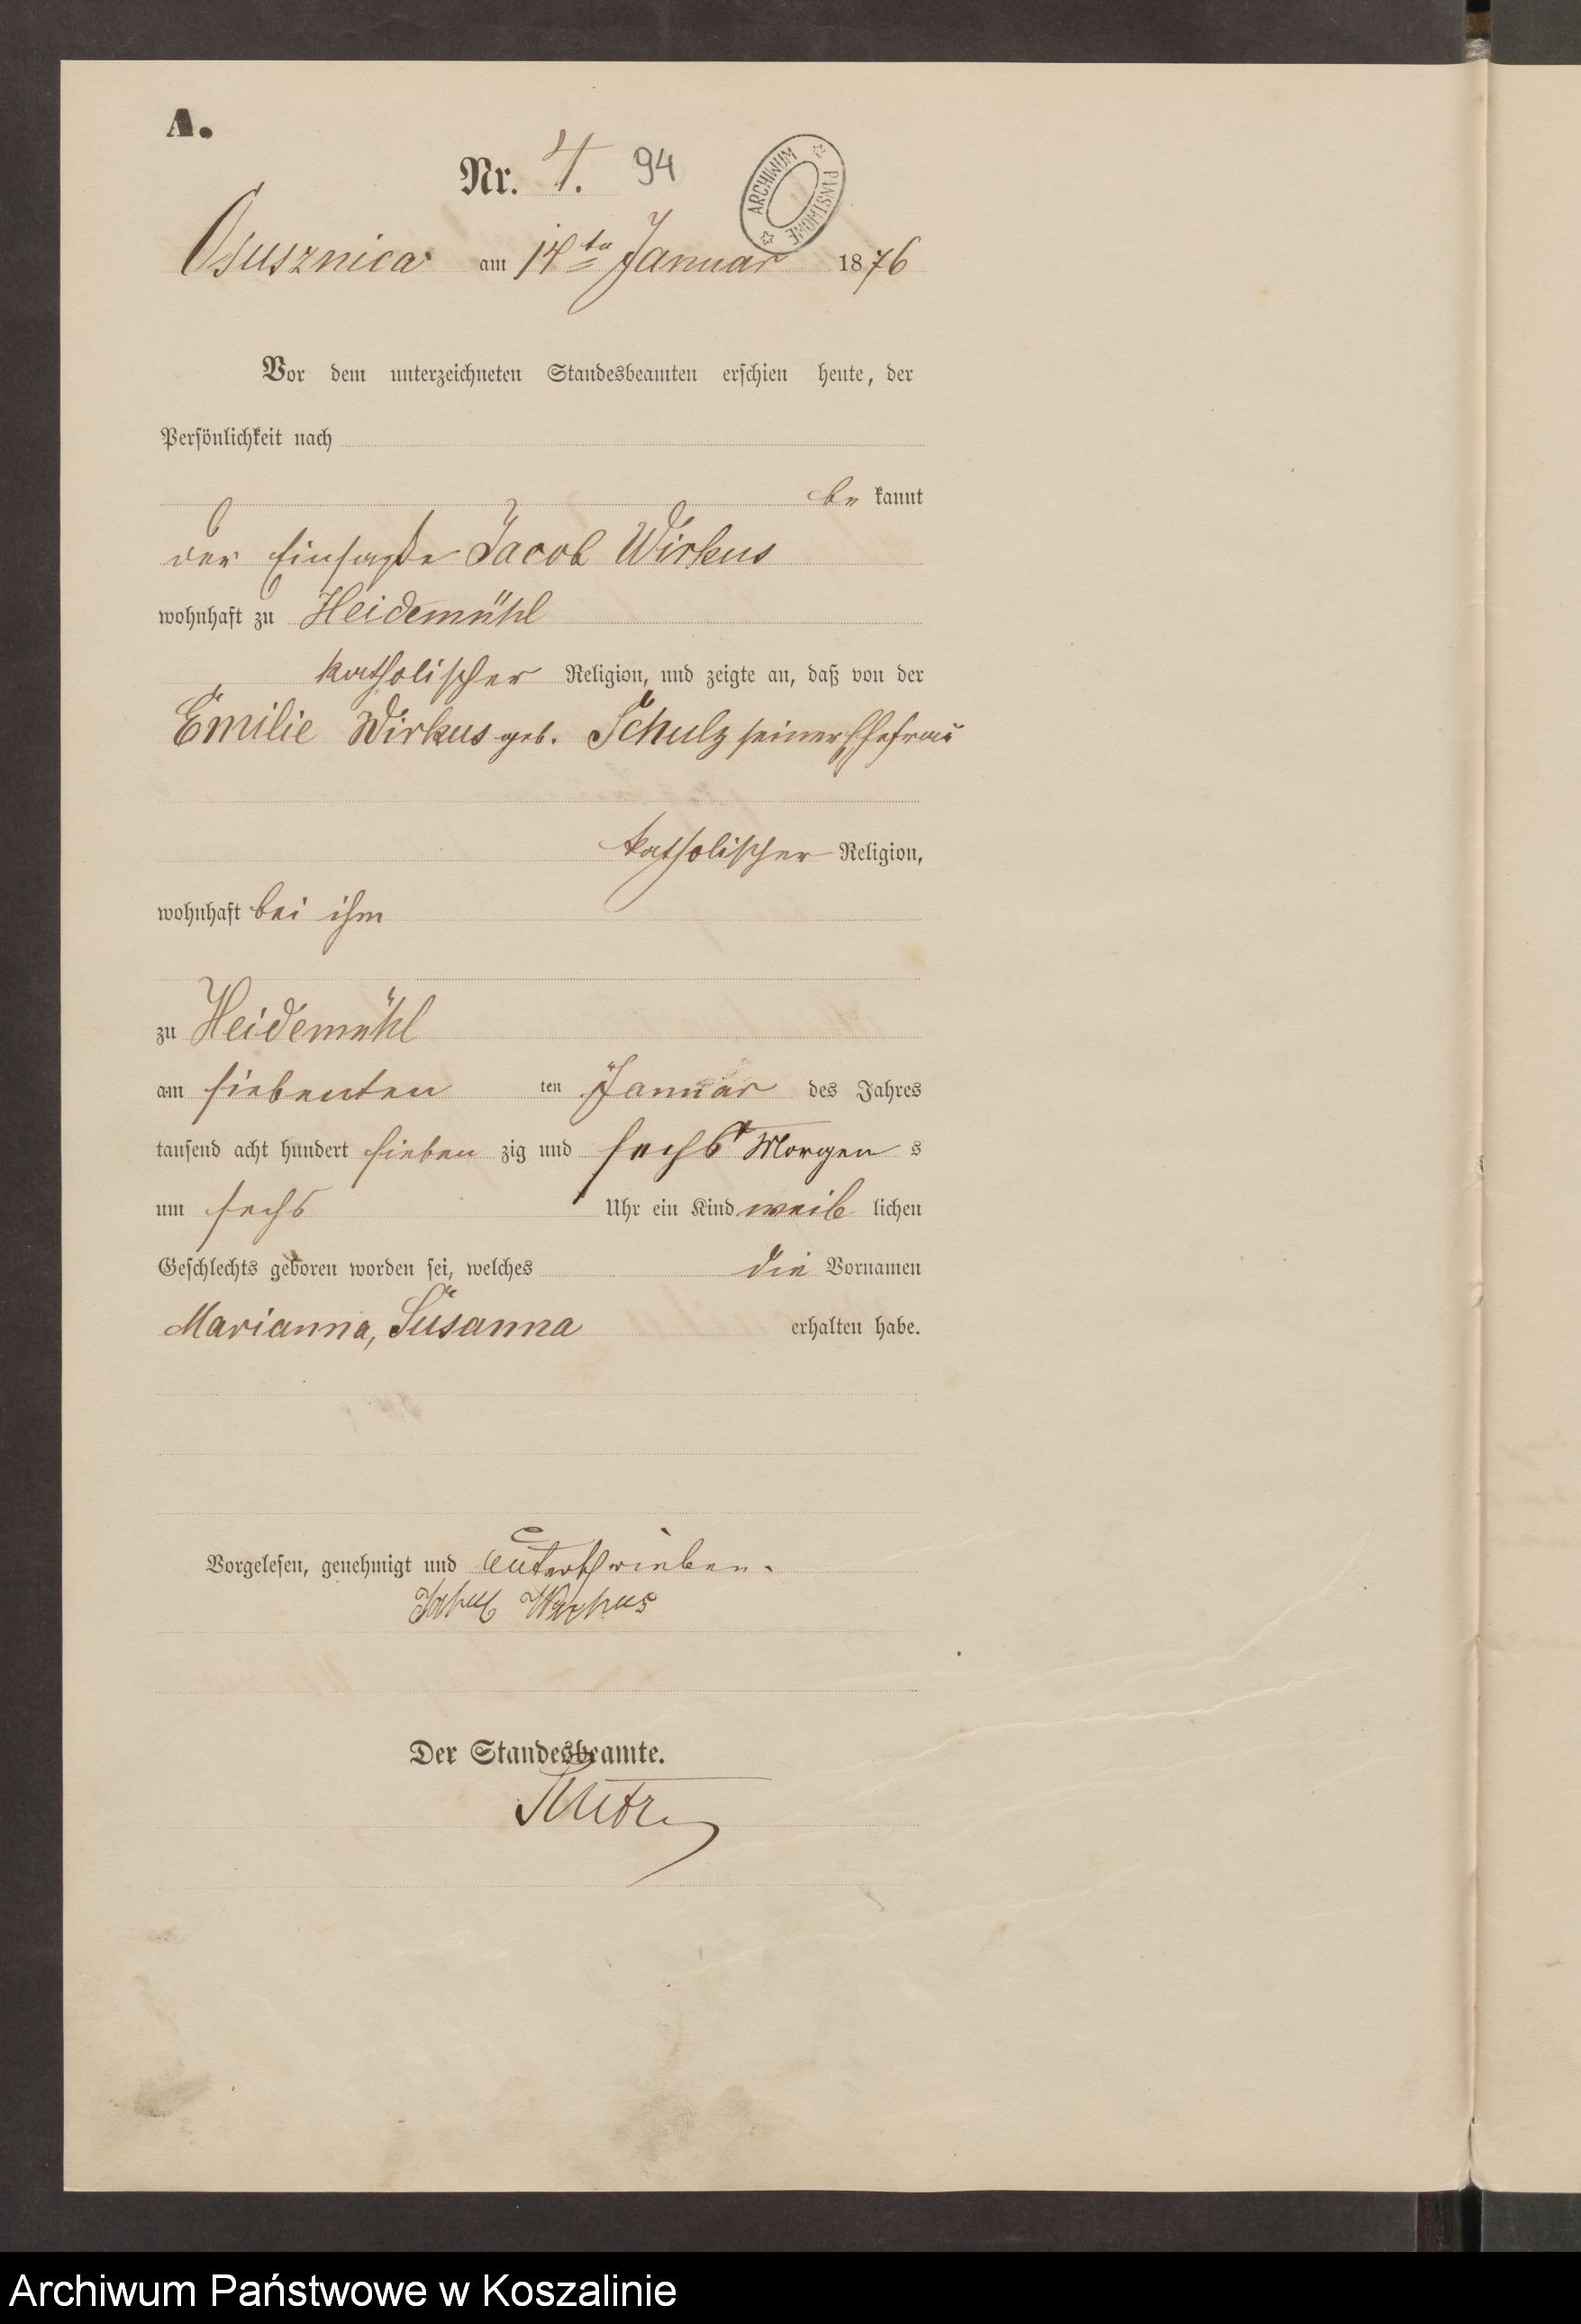 A.
Nr. 4. 94
ARCHIWUM PAŃSTWOWE
Osusznica am 14ten Januar 1876
Vor dem unterzeichneten Standesbeamten erschien heute, der
Persönlichkeit nach
be kannt
der Einsaße Jacob Wirkus
wohnhaft zu Heidemühl
katholischer Religion, und zeigte an, daß von der
Emilie Wirkus geb. Schulz seiner Ehefrau
katholischer Religion,
wohnhaft bei ihm
zu Heidemühl
am siebenten ten Januar des Jahres
tausend acht hundert sieben zig und sechs Morgen s
um sechs Uhr ein Kind weib lichen
Geschlechts geboren worden sei, welches die Vornamen
Marianna, Susanna erhalten habe.
Vorgelesen, genehmigt und unterschrieben.
Der Standesbeamte.
Archiwum Państwowe w Koszalinie